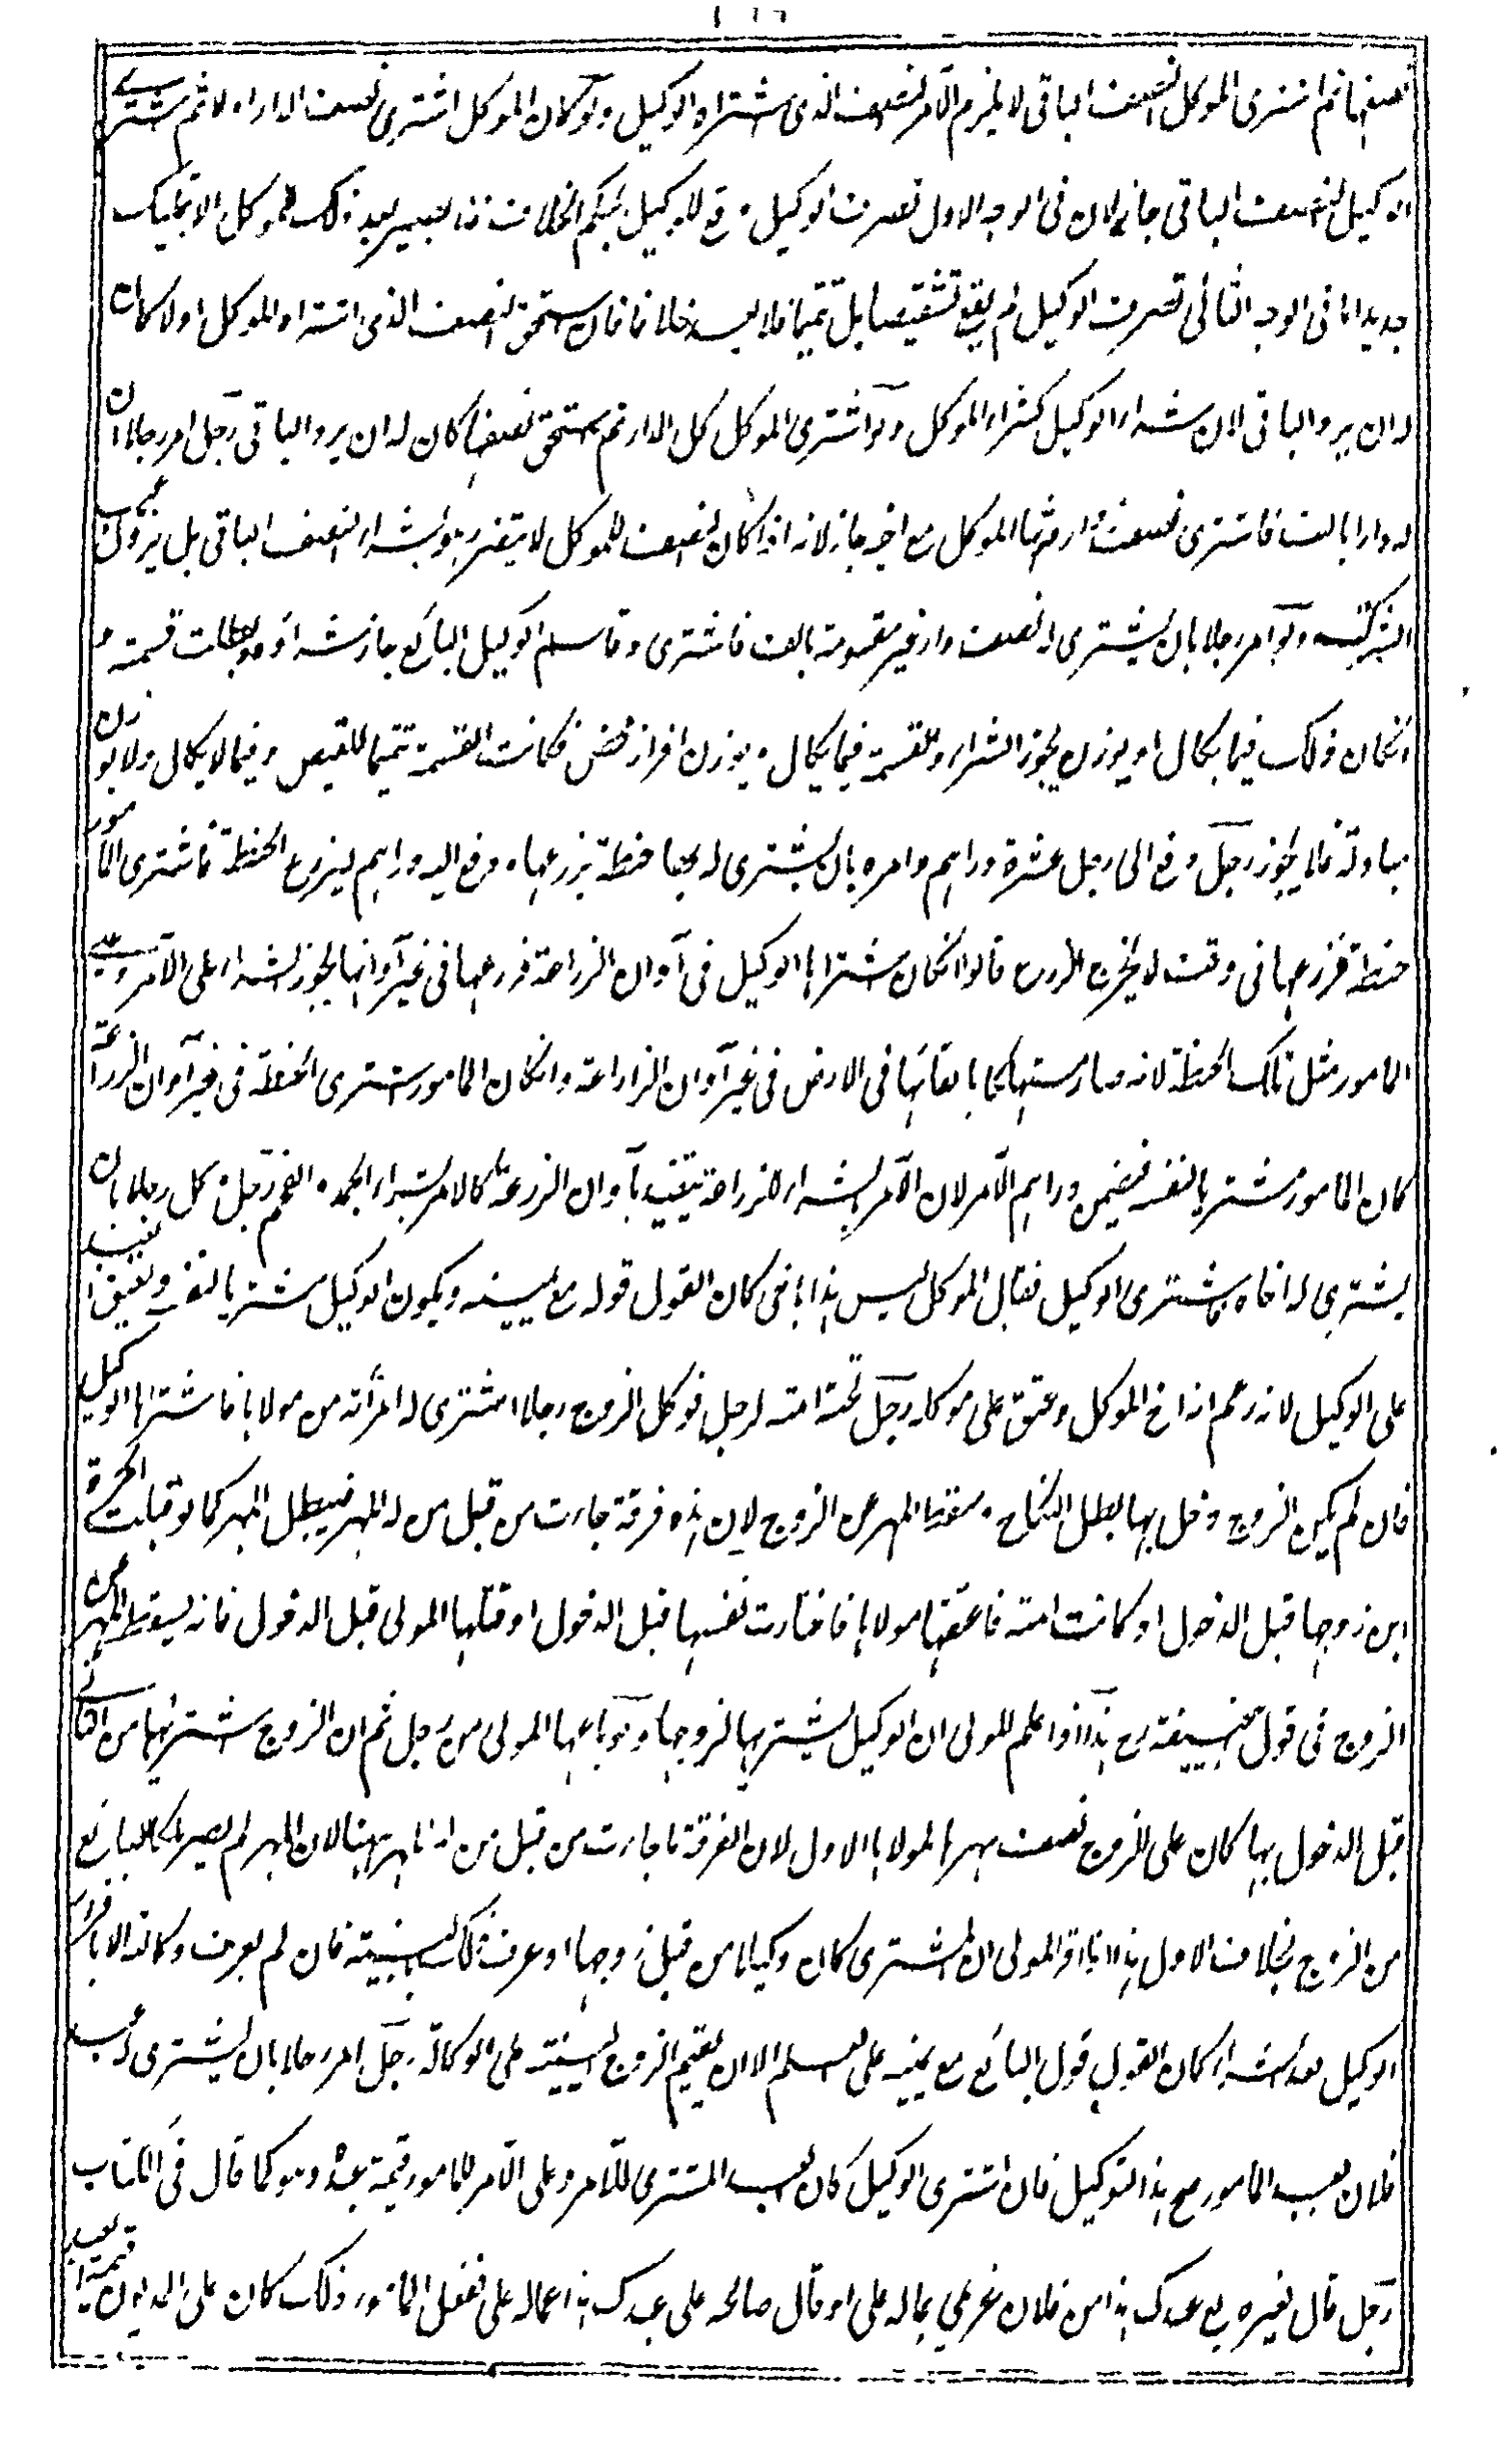 نصفها ثم اشترى الموكل النصف الباقى لا يلزم الآمر النصف الذى اشتراه الوكيل ولو كان الموكل اشترى نصف الدار اولا ثم اشترى
الوكيل النصف الباقى جاز لان فى الوجه الاول تصرف الوكيل وقع للوكيل بحكم الخلاف فلا يصير بعد ذلك للموكل الا بتمليك
جديد اما فى الوجه الثانى تصرف الوكيل لم يقع تشقيصا بل تتميما فلا يعد خلافا فان استحق النصف الذى اشتراه الموكل اولا كان
له ان يرد الباقى لان شراء الوكيل كشراء الموكل ولو اشترى الموكل كل الدار ثم استحق نصفها كان له ان يرد الباقى رجل امر رجلا ان
له دارا بالف فاشترى نصف دار ورثها الموكل مع اخيه جاز لانه اذا كان النصف للموكل لا يتضرر هو بشراء النصف الباقى بل يزول عيب
الشركة ولو امر رجلا بان يشترى له نصف دار غير مقسومة بالف فاشترى وقاسم الوكيل البائع جاز شراؤه وبطلت قسمته و
ان كان ذلك فيما يكال او يوزن يجوز الشراء والقسمة فيما يكال ويوزن افراز محض فكانت القسمة تتميما للقبض وفيما لا يكال ولا يوزن
مبادلة فلا يجوز رجل دفع الى رجل عشرة دراهم وامره بان يشترى له بها حنطة يزرعها ودفع اليه دراهم ليزرع الحنطة فاشترى المأمور
حنطة فزرعها فى وقت لا يخرج الزرع قالوا ان كان اشتراها الوكيل فى آوان الزراعة فزرعها فى غير آوانها يجوز الشراء على الآمر وعلى
المامور مثل تلك الحنطة لانه صار مستهلكا بالقائها فى الارض فى غير آوان الزراعة وان كان المامور اشترى الحنطة فى غير آوان الزراعة
كان المامور مشتريا لنفسه فيضمن دراهم الآمر لان الآمر بالشراء للزراعة يتقيد بآوان الزراعة كالامر بشراء الجمد والفحم رجل وكل رجلا بان
يشترى له اخاه فاشترى الوكيل فقال الموكل ليس هذا باخى كان القول قوله مع يمينه ويكون الوكيل مشتريا لنفسه ويعتق العبد
على الوكيل لانه زعم انه اخ الموكل وعتق على موكله رجل تحته امة لرجل فوكل الزوج رجلا اشترى له امرأته من مولاها فاشتراها الوكيل
فان لم يكن الزوج دخل بها بطل النكاح وسقط المهر عن الزوج لان هذه فرقة جاءت من قبل من له المهر فيبطل المهر كما لو قبلت الحرة
ابن زوجها قبل الدخول او كانت امة فاعتقها مولاها فاختارت نفسها قبل الدخول او قتلها المولى قبل الدخول فانه يسقط المهر عن
الزوج فى قول ابى حنيفة رح هذا اذا علم للمولى ان الوكيل يشتريها لزوجها ولو باعها المولى من رجل ثم ان الزوج اشتراها من الثانى
قبل الدخول بها كان على الزوج نصف مهرها لمولاها الاول لان الفرقة ما جاءت من قبل من له المهر ههنا لان المهر لم يصر ملكا للبائع
من الزوج بخلاف الاول هذا اذا اقر المولى ان المشترى كان وكيلا من قبل زوجها او عرف ذلك بالبينة فان لم يعرف وكالته الا باقرار
الوكيل بعد الشراء كان القول قول البائع مع يمينه على العلم الا ان يقيم الزوج البينة على الوكالة رجل امر رجلا بان يشترى له عبد
فلان بعبد المامور صح هذا التوكيل فان اشترى الوكيل كان العبد المشترى للآمر وعلى الآمر للمامور قيمة عبده وهو كما قال فى الكتاب
رجل قال لغيره بع عبدك هذا من فلان غريمى بماله على او قال صالحه على عبدك هذا عما له على ففعل المامور ذلك كان على المديون قيمة العبد